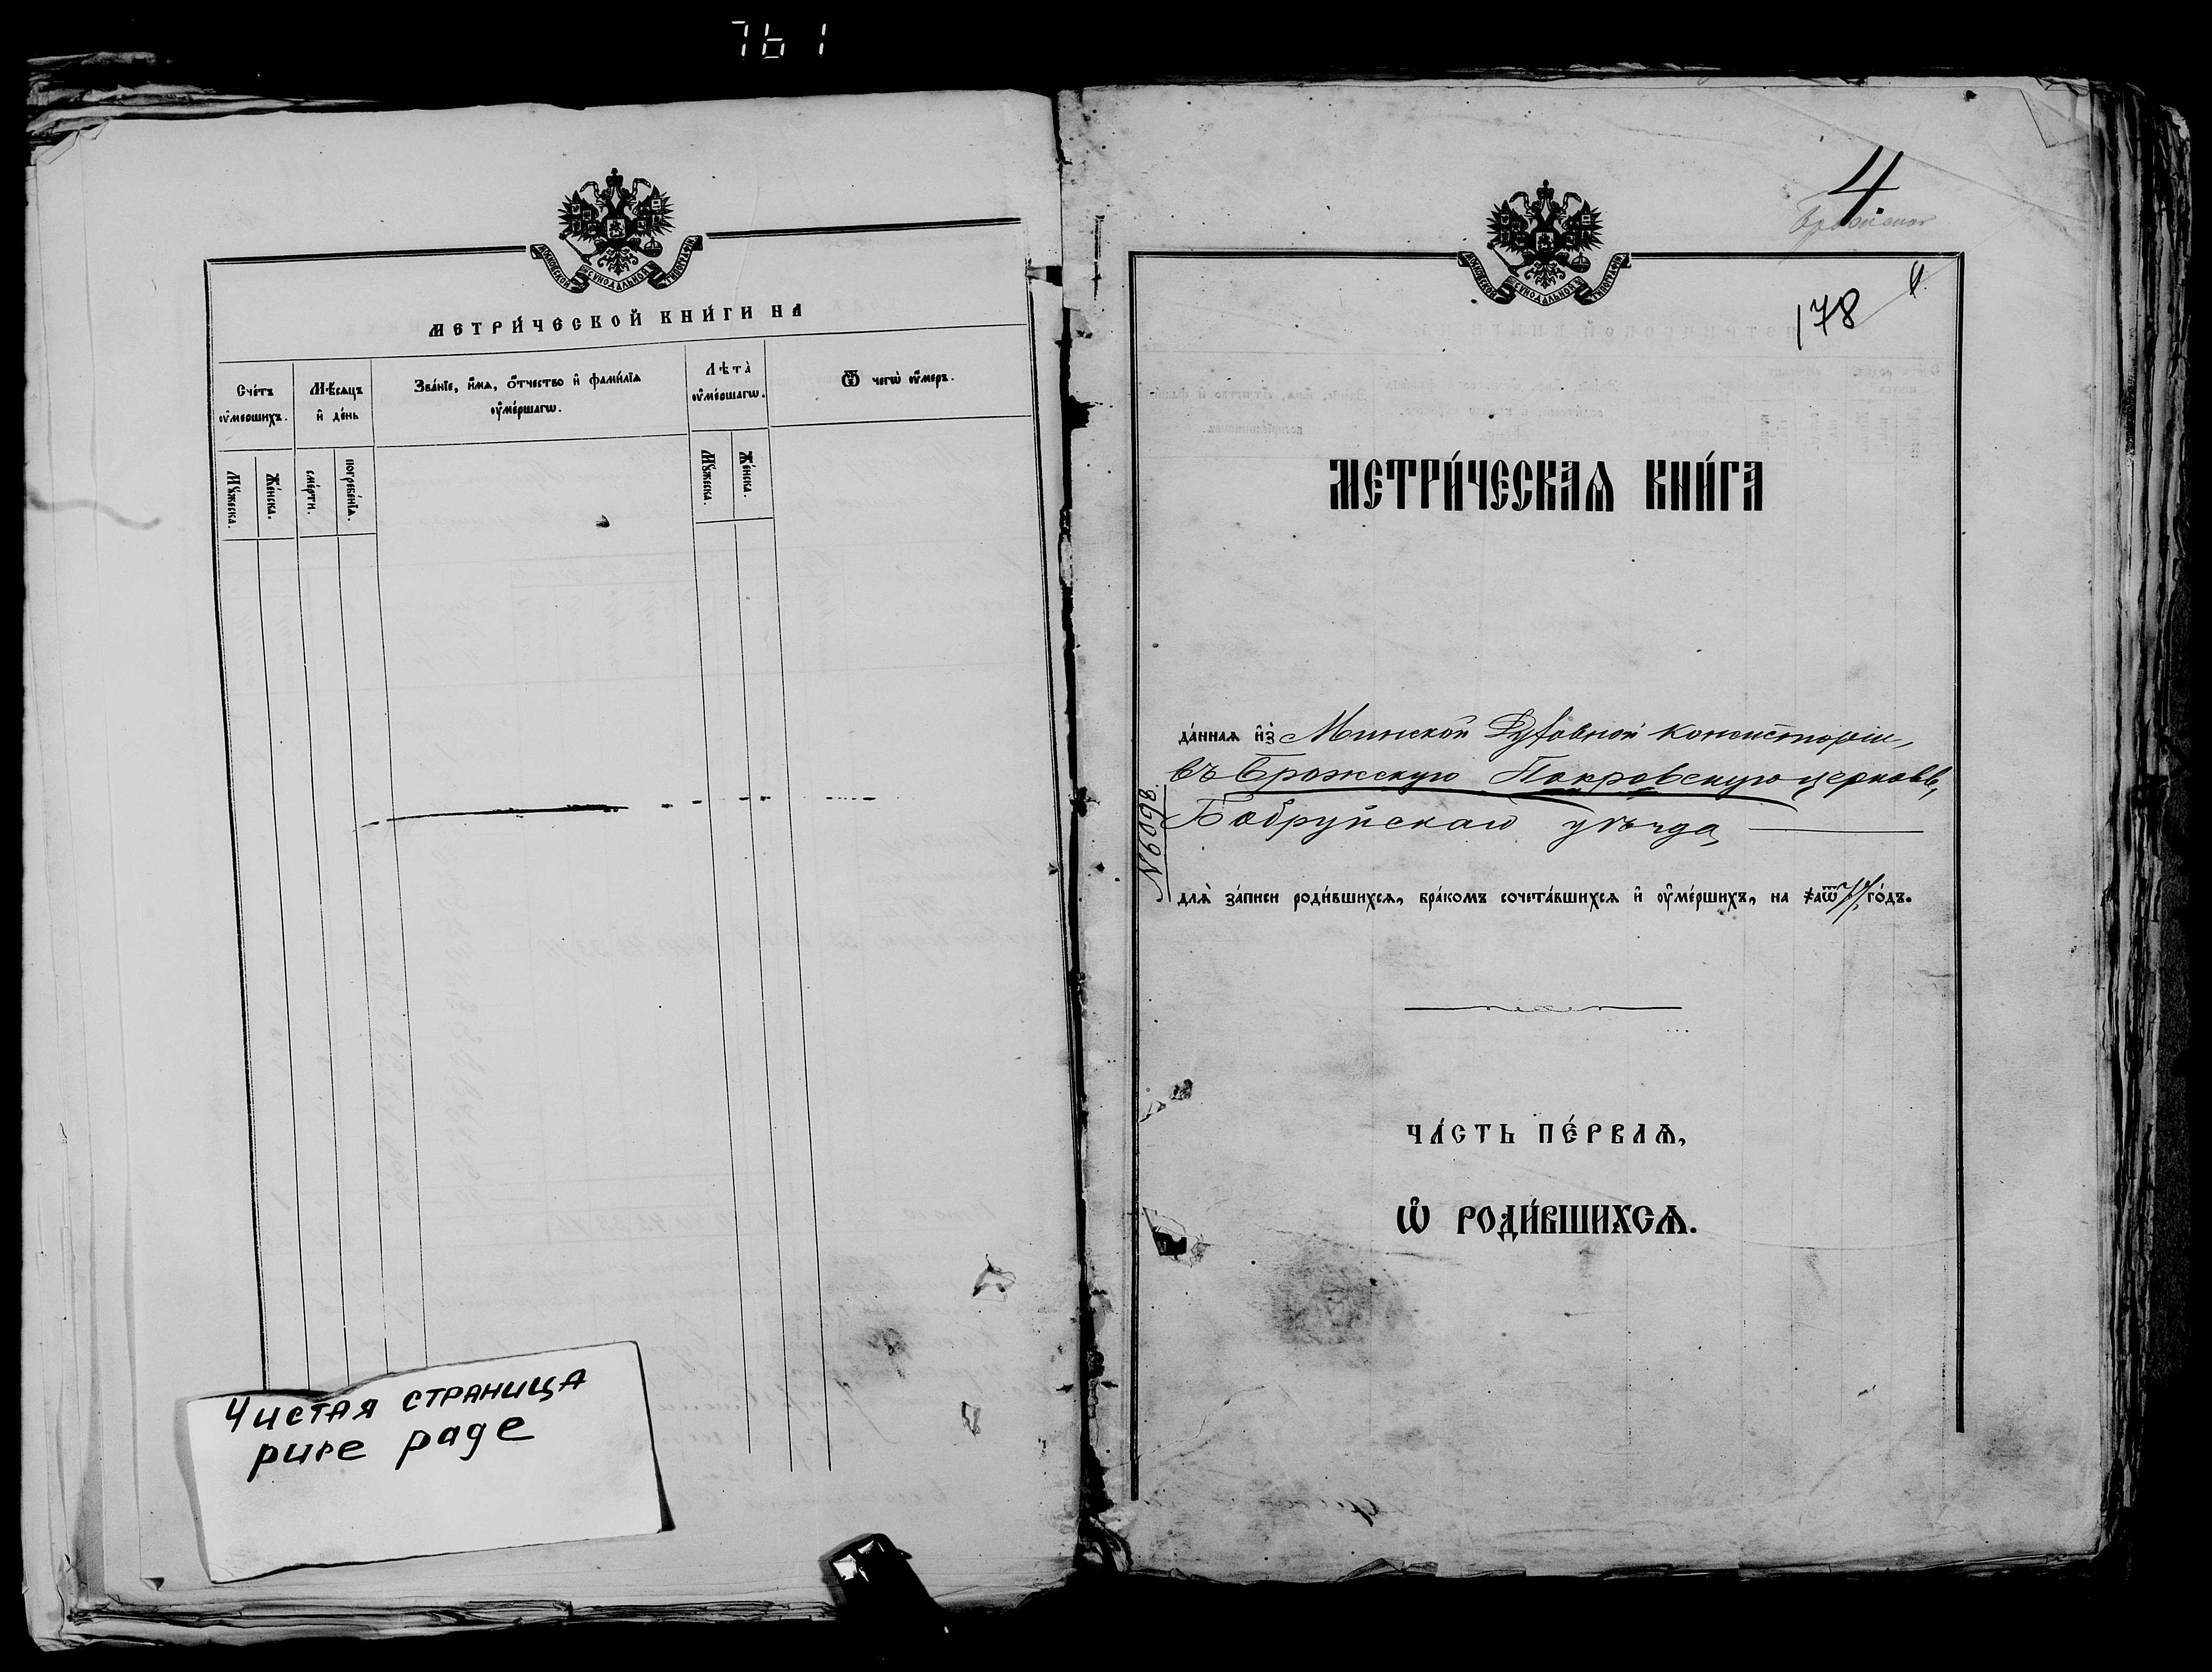 761
МОСКОВСКОЙ СѴНОДАЛЬНОЙ ТИПОГРАФІИ
МЕТРИ́ЧЕСКОЙ КНИ́ГИ НА
Сче́тъ ᲂу҆ме́ршихъ.
Мѣ́сяцъ и҆ де́нь
Зва́нїе, и҆́мѧ, ѻ҆́тчество и҆ фами́лїѧ ᲂу҆ме́ршагѡ.
Лѣта̀ ᲂу҆ме́ршагѡ.
Ѿ чегѡ̀ ᲂу҆́меръ.
Мꙋ́жеска.
Же́нска.
сме́рти.
погребе́нїѧ.
Мꙋ́жеска.
Же́нска.
Чистая страница
pure page
4.
МОСКОВСКОЙ СѴНОДАЛЬНОЙ ТИПОГРАФІИ
178
МЕТРИ́ЧЕСКАѦ КНИ́ГА
да́ннаѧ и҆з̾ Минской Духовной Консисторіи,
въ Брожскую Покровскую церковь,
Бобруйскаго уѣзда,
№6098.
длѧ̀ за́писи роди́вшихсѧ, бра́комъ сочета́вшихсѧ и҆ ᲂу҆ме́ршихъ, на ҂аѿ го́дъ.
ЧА́СТЬ ПЕ́РВАѦ,
Ѡ҆ РОДИ́ВШИХСѦ.